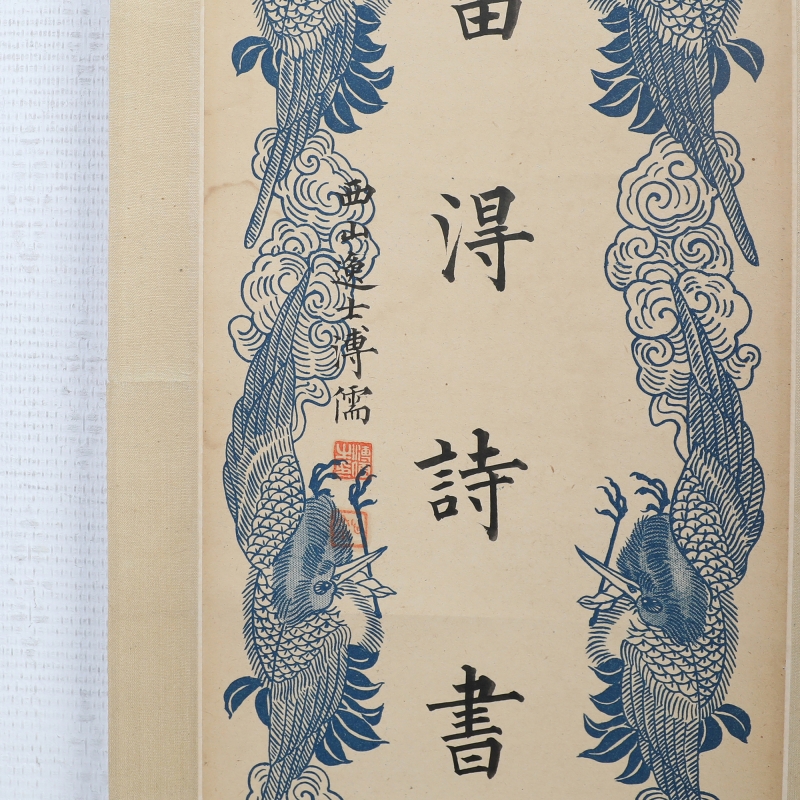 淂詩書
西山逸士溥儒